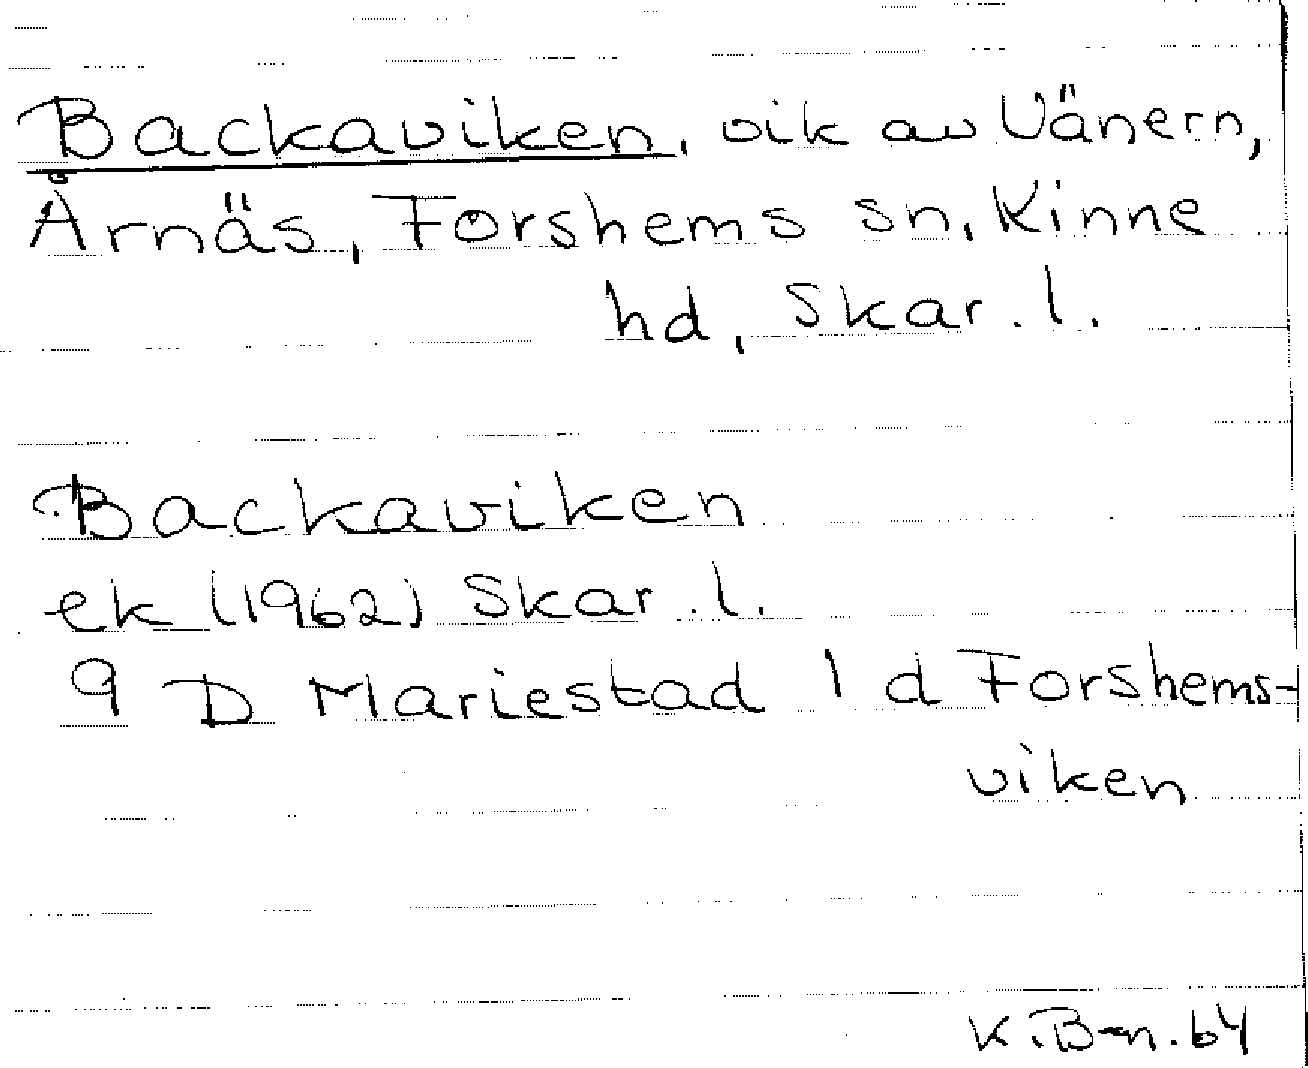 Backaviken, vik av Vänern,
Årnäs, Forshems sn, Kinne
hd, Skar. l.
Backaviken
ek (1962) Skar. l.
9 D Mariestad 1 d Forshems-
viken
K. B-n. 64